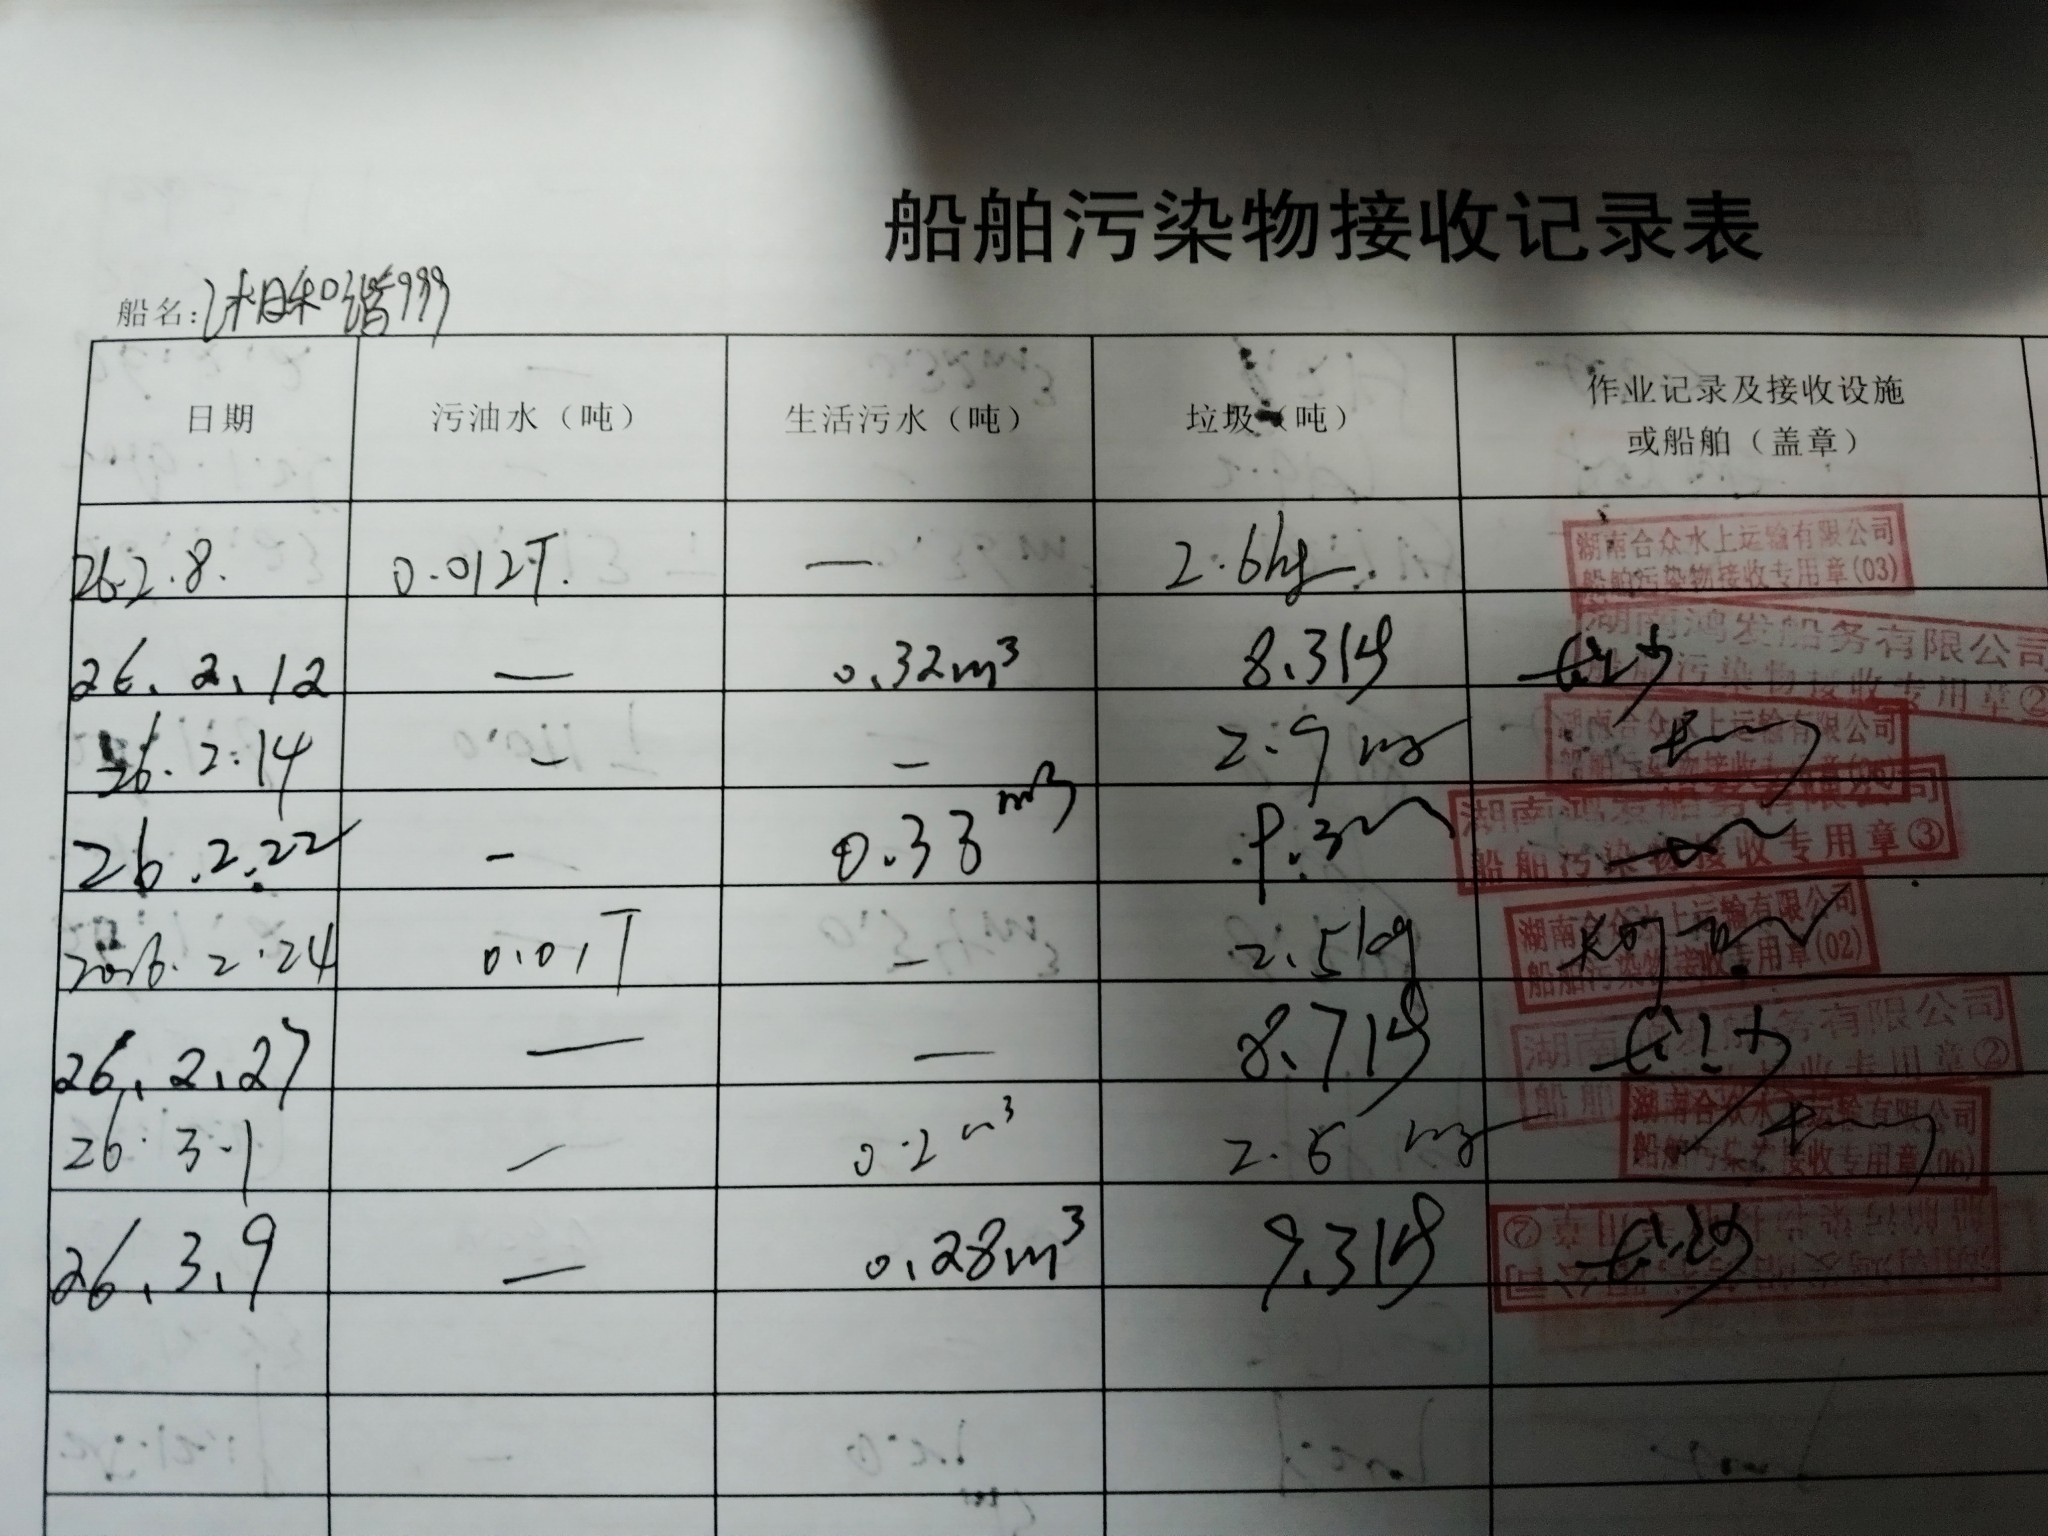 船舶污染物接收记录表
船名:湘和谐999
日期 污油水（吨） 生活污水（吨） 垃圾（吨） 作业记录及接收设施
或船舶（盖章）
26.2.8. 0.012T. — 2.6kg 湖南合众水上运输有限公司
船舶污染物接收专用章(03)
26.2.12 — 0.32m³ 8.3kg 长沙 湖南鸿发船务有限公司
船舶污染物接收专用章②
26.2.14 — — 2.9kg 湖南合众水上运输有限公司
26.2.22 — 0.33m³ 湖南鸿发船务有限公司
船舶污染物接收专用章③
2026.2.24 0.01T — 2.5kg 湖南合众水上运输有限公司
船舶污染物接收专用章(02)
26.2.27 — — 8.7kg 长沙 湖南鸿发船务有限公司
船舶污染物接收专用章②
26.3.1 — 0.2m³ 2.6kg 湖南合众水上运输有限公司
船舶污染物接收专用章(06)
26.3.9 — 0.28m³ 9.3kg 长沙